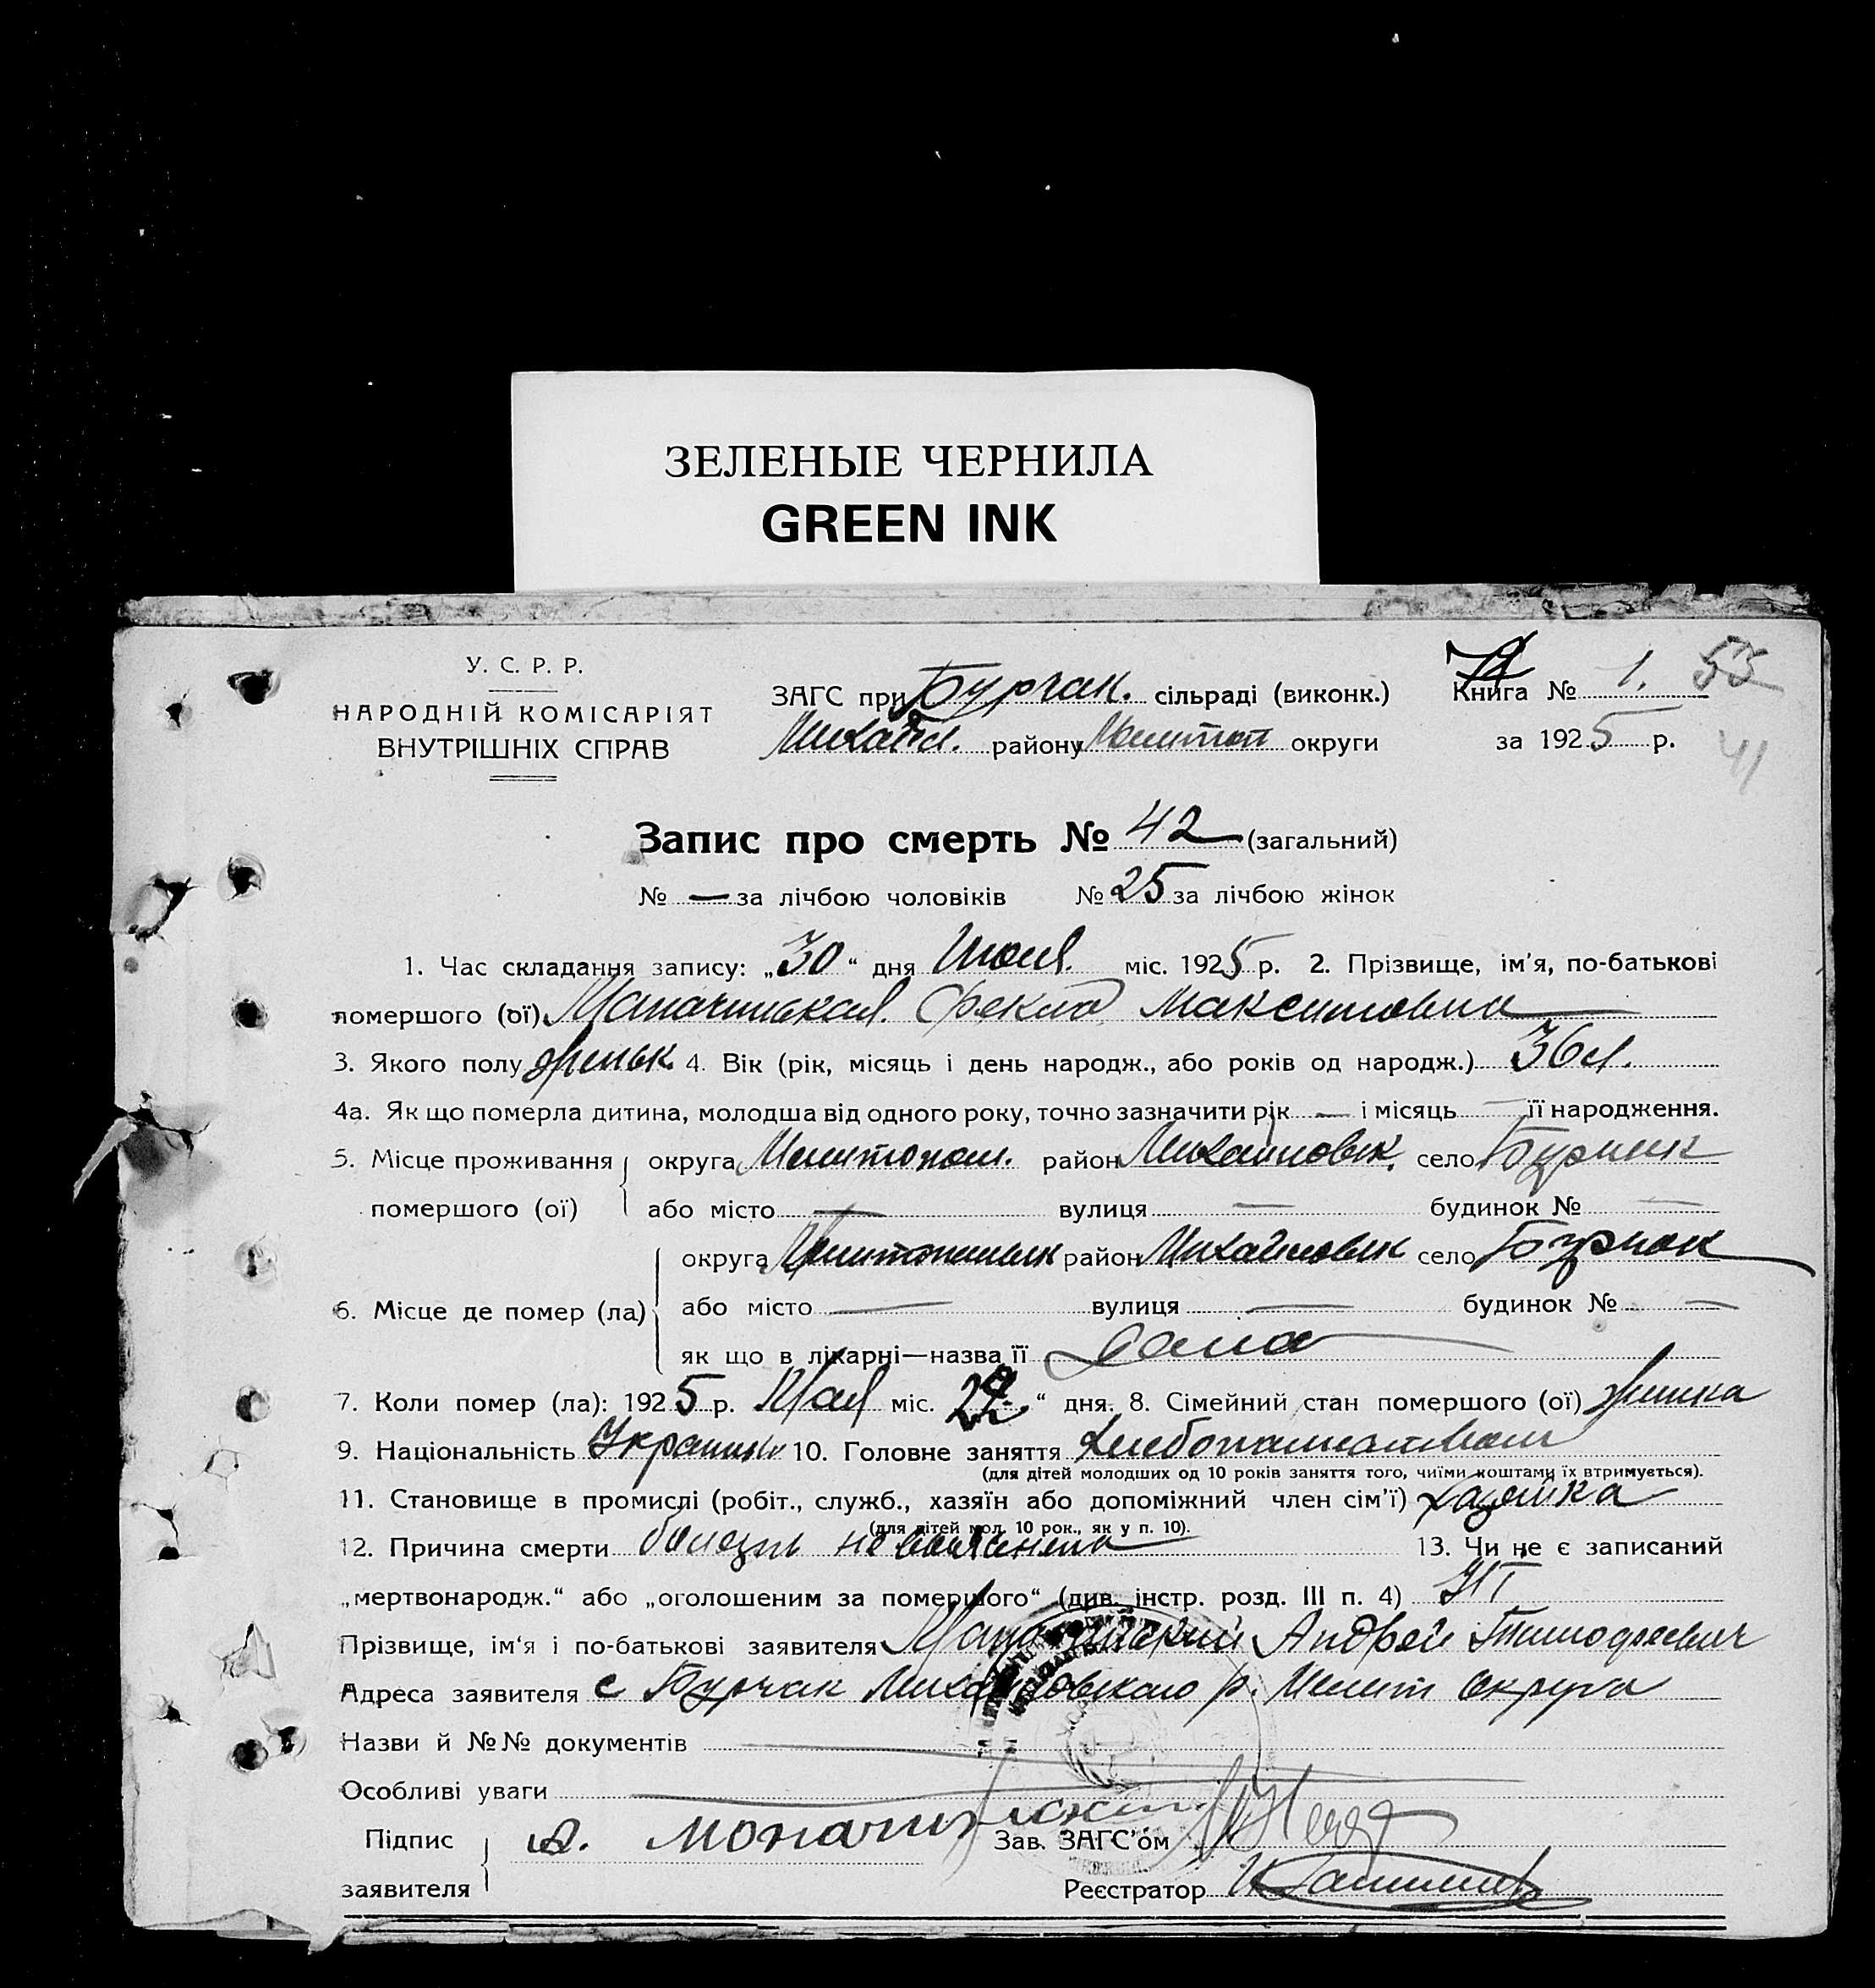 ЗЕЛЕНЫЕ ЧЕРНИЛА
GREEN INK
У. С. Р. Р.
НАРОДНІЙ КОМІСАРІЯТ
ВНУТРІШНІХ СПРАВ
ЗАГС при Бурчак. сільраді (виконк.)
Михайл. району Мелитоп округи
Книга № 1. 53
за 1925 р. 41
Запис про смерть № 42 (загальний)
№ — за лічбою чоловіків № 25 за лічбою жінок
1. Час складання запису: „30“ дня Июня. міс. 1925 р. 2. Прізвище, ім'я, по-батькові
помершого (ої) Фекла Максимовна
3. Якого полу женск. 4. Вік (рік, місяць і день народж., або років од народж.) 36 л.
4а. Як що померла дитина, молодша від одного року, точно зазначити рік — і місяць — її народження.
5. Місце проживання помершого (ої) округа Мелитопол. район Михайловск. село Бурчак
або місто — вулиця — будинок № —
6. Місце де помер (ла) округа Мелитопольск район Михайловск село Бурчак
або місто — вулиця — будинок № —
як що в лікарні—назва її дома
7. Коли помер (ла): 1925 р. Мая міс. “ дня. 8. Сімейний стан помершого (ої)
9. Національність Украинк 10. Головне заняття
(для дітей молодших од 10 років заняття того, чиїми коштами їх втримується).
11. Становище в промислі (робіт., служб., хазяїн або допоміжний член сім'ї) хазяйка
(для дітей мол. 10 рок., як у п. 10).
12. Причина смерти болезнь не выяснена 13. Чи не є записаний
„мертвонародж.“ або „оголошеним за помершого“ (див. інстр. розд. III п. 4)
Прізвище, ім'я і по-батькові заявителя Андрей Тимофеевич
Адреса заявителя с Бурчак Михайловского р. Мелит округа
Назви й №№ документів
Особливі уваги
Підпис заявителя Зав. ЗАГС'ом
Реєстратор